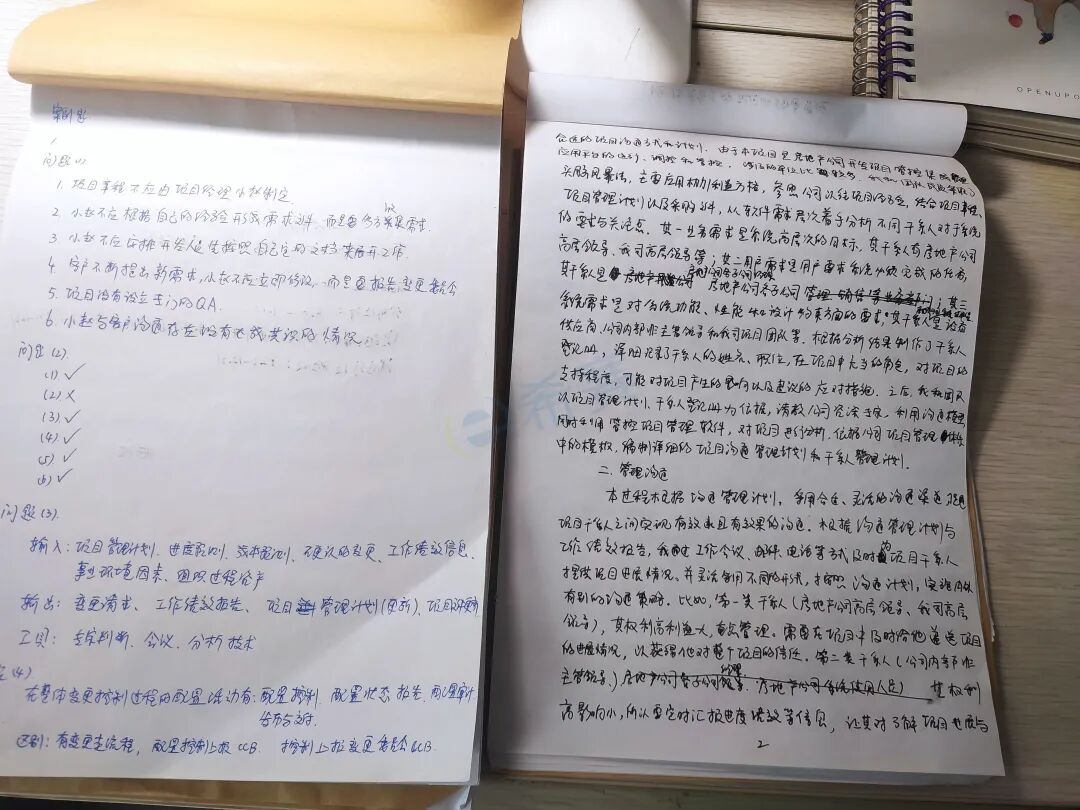 案例题
问题(1)
1. 项目章程不应由项目经理小赵制定
2. 小赵不应根据自己的经验形成需求文件，而是要各方采集需求.
3. 小赵不应安排开发人员先按照自己定的文档来展开工作.
4. 客户不断提出新需求,小赵不应立即修改，而是要报告变更委员会
5. 项目没有设立专门的QA.
6. 小赵与客户沟通存在没有达成共识的情况
问题(2).
(1) ✓
(2) ×
(3) ✓
(4) ✓
(5) ✓
(6) ✓
问题(3).
输入：项目管理计划、进度预测、成本预测、不确认的变更、工作绩效信息、
事业环境因素、组织过程资产
输出：变更请求、工作绩效报告、项目管理计划(更新)、项目文件更新
工具：专家判断、会议、分析技术
(4)
在整体变更控制过程的配置活动有：配置控制、配置状态报告、配置审计
区别：有变更走流程，配置控制上报CCB. 控制上报变更委员会CCB.
合适的项目沟通方式和计划. 由于本项目是房地产公司开发项目管控集成
应用平台的
头脑风暴法，主要应用权力利益方格，参照公司以往项目的经验，结合项目章程、
项目管理计划以及采购文件，从软件需求层次着手分析不同干系人对于系统
的需求与关注点. 其一业务需求是系统高层次的目标，其干系人有房地产公司
高层领导、我司高层领导等；其二用户需求是用户要求系统必须完成的任务，
其干系人是 房地产公司各子公司 ；其三
系统需求是对系统功能、性能和设计约束方面的需求，其干系人是设备
供应商、公司内部非主管领导和我司项目团队等. 根据分析结果制作了干系人
登记册，详细记录了干系人的姓名、职位，在项目中充当的角色，对项目的
支持程度，可能对项目产生的影响以及建议的应对措施. 之后，我和团队
以项目管理计划、干系人登记册为依据，请教公司资深专家，利用沟通模型，
同时利用管控项目管理软件，对项目进行分析. 依据公司项目管理体系
中的模板，编制详细的项目沟通管理计划和干系人管理计划.
二. 管理沟通
本过程根据沟通管理计划，采用合适、灵活的沟通渠道，促进
项目干系人之间实现有效率且有效果的沟通. 根据沟通管理计划与
工作绩效报告，我通过工作会议、邮件、电话等方式及时向项目干系人
提供项目进展情况. 并灵活利用不同的形式，按照沟通计划，实施具体
有别的沟通策略. 比如，第一类干系人(房地产公司高层领导、我司高层
领导)，其权利高利益大，重点管理. 需要在项目中及时给他递送项目
的进展情况，以获得他对整个项目的信任. 第二类干系人(公司内部非
主管领导) 其权利
高影响小,所以要定时汇报进度绩效等信息，让其对了解项目进展与
2
OPENUPO